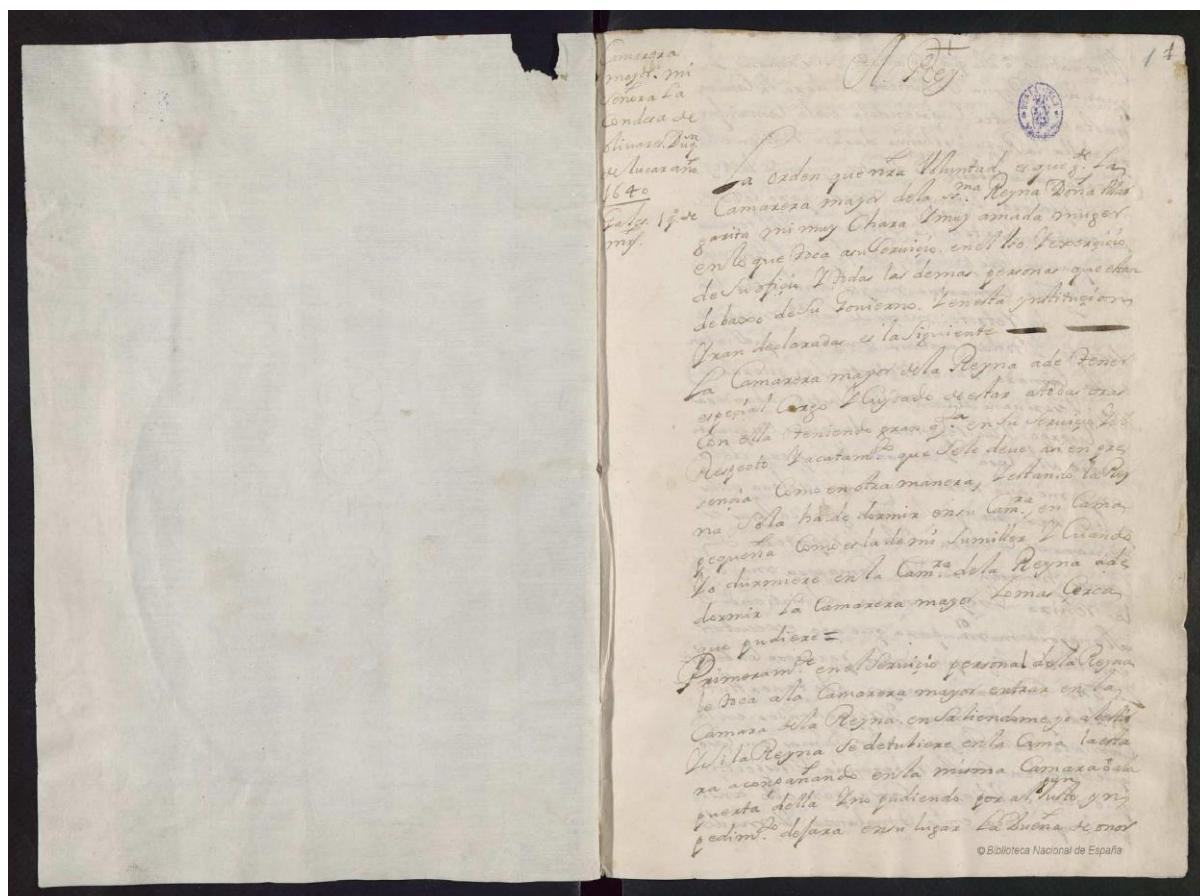 Camarera
mayor mi
señora la
Condesa de
olivares Duqsa
de lucar año
1640
Gajes 1qo de
mrs.
El Rey
14
La orden que nra Voluntad es que gde La
Camarera mayor de la Sma Reyna Doña Mar
garita mi muy Chara Y muy amada muger
en lo que toca a su Serviçio en el Uso Y exerçiçio
de su ofiçio Y todas las demas personas que estan
debaxo de su Govierno Y en esta ynstituçion
Yran declaradas es la siguiente
La Camarera mayor de la Reyna a de tener
espeçial Cargo Y Cuydado de estar a todas oras
Con ella teniendo gran qta en su serviçio Y el
Respecto Y acatamto que se le deve asi en pre
sençia Como en otra manera, Y estando la Rey
na sola ha de dormir en su Camra en Cama
pequeña Como es la de mi Sumiller Y Cuando
Yo durmiere en la Camra de la Reyna a de
dormir La Camarera mayor Lo mas Çerca
que pudiere =
Primeramte en el Serviçio personal de la Reyna
le toca a la Camarera mayor entrar en la
Camara de la Reyna en saliendome yo a bestir
Y si la Reyna se detubiere en la Cama la esta
ra aconpañando en la misma Camara o a la
puerta della Y no pudiendo por algun Justo yn
pedimto dejara en su lugar La Dueña de onor
© Biblioteca Nacional de España